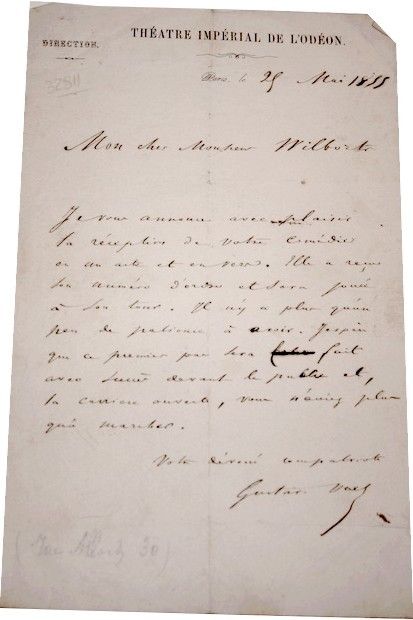 THÉATRE IMPÉRIAL DE L'ODÉON.
DIRECTION.
32811
Paris, le 25 Mai 1855
Mon cher Monsieur Wilbort
Je vous annonce avec plaisir
la réception de votre comédie
en un acte et en vers. Elle a reçu
son numéro d'ordre et sera jouée
à son tour. Il n'y a plus qu'un
peu de patience à avoir. J'espère
que ce premier pas sera fait
avec succès devant le public et,
la carrière ouverte, vous n'aurez plus
qu'à marcher.
Votre dévoué compatriote
Gustave Vaez
(Rue 30)